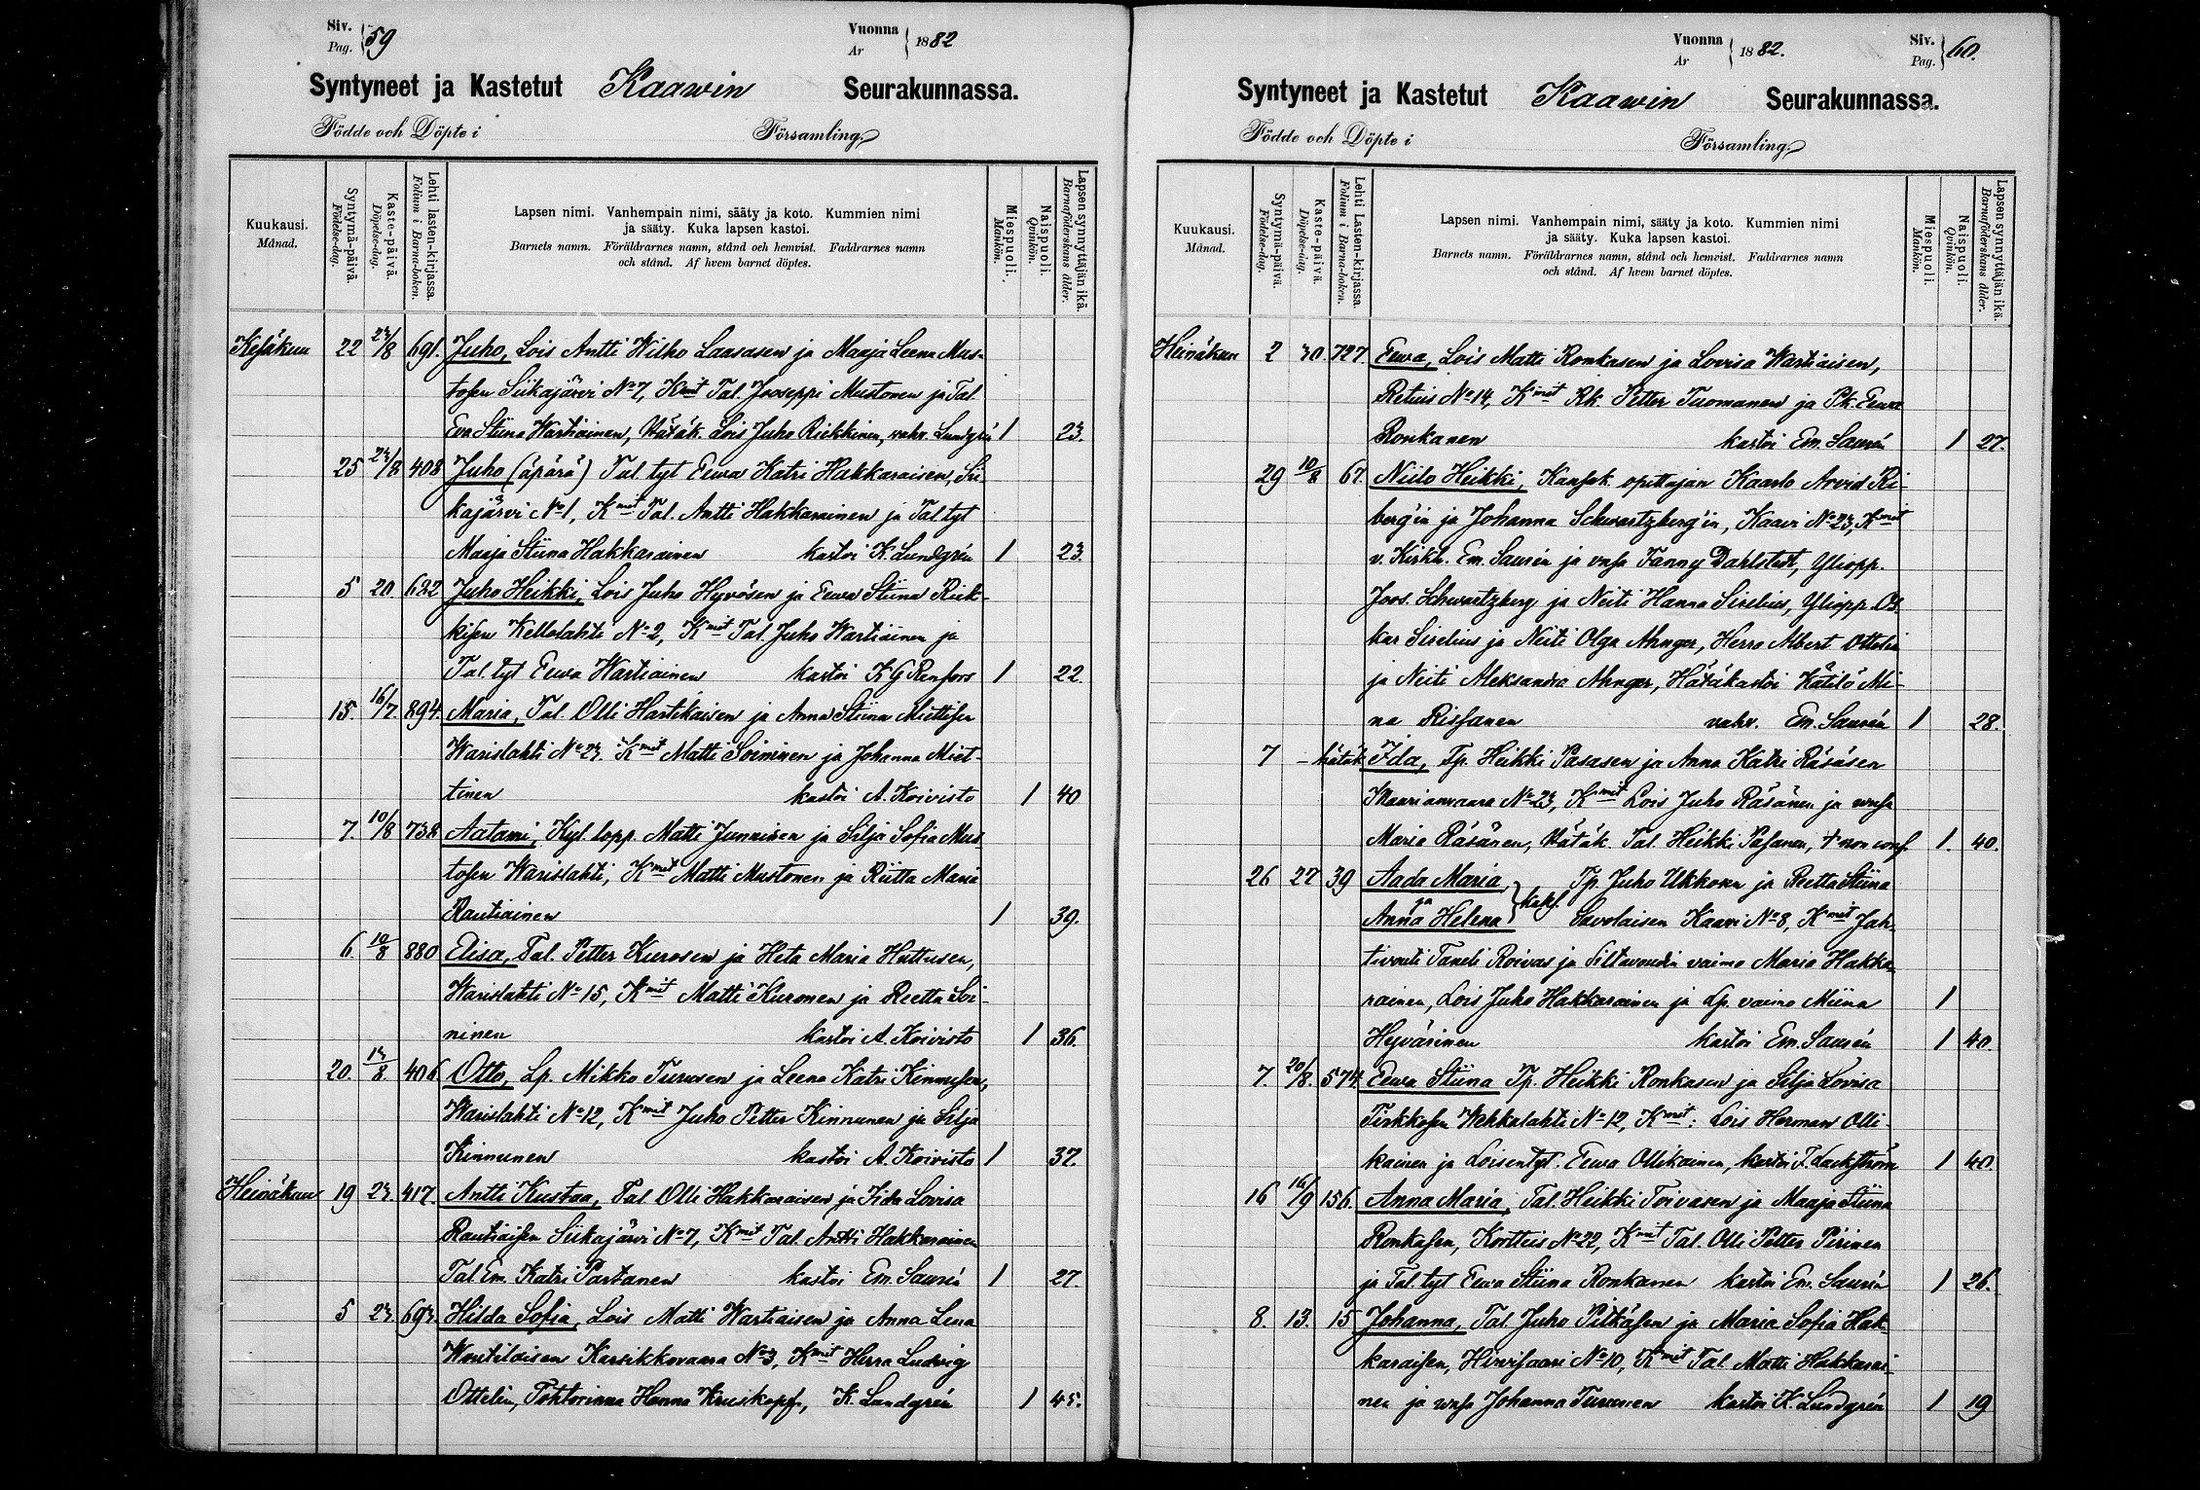 Siv. Pag. 59
Vuonna År 1882
Syntyneet ja Kastetut Kaawin Seurakunnassa.
Födde och Döpte i Församling.
Kuukausi. Månad.
Syntymä-päivä. Födelse-dag.
Kaste-päivä. Döpelse-dag.
Lehti lasten-kirjassa. Folium i Barna-boken.
Lapsen nimi. Vanhempain nimi, sääty ja koto. Kummien nimi
ja sääty. Kuka lapsen kastoi.
Barnets namn. Föräldrarnes namn, stånd och hemvist. Faddrarnes namn
och stånd. Af hvem barnet döptes.
Miespuoli. Mankön.
Naispuoli. Qvinkön.
Lapsen synnyttäjän ikä. Barnaföderskans ålder.
Kesäkuu 22 23/8 691. Juho, Lois Antti Wilho Laasasen ja Maaja Leena Mus-
tosen Siikajärvi No 7, Kmit Tal. Jooseppi Mustonen ja Tal.
Eva Stiina Wartiainen, Hätäk. Lois Juho Riekkinen, vahv. Lundgrén 1 23.
25 23/8 408 Juho (äpärä) Tal. tyt Eewa Katri Hakkaraisen, Sii
kajärvi No 1, Kmit Tal. Antti Hakkarainen ja Tal tyt
Maaja Stiina Hakkarainen kastoi K. Lundgrén 1 23.
5 20 622 Juho Heikki, Lois Juho Hyvösen ja Eewa Stiina Riek-
kisen Kellolahti No 2, Kmit Tal. Juho Wartiainen ja
Tal. tyt Eewa Wartiainen kastoi K G Renfors 1 22.
15. 16/7 894. Maria, Tal. Olli Hartikaisen ja Anna Stiina Miettisen
Warislahti No 23. Kmit Matti Soininen ja Johanna Miet-
tinen kastoi A. Koivisto 1 40
7. 10/8 738 Aatami, Kyl. lopp. Matti Junnisen ja Silja Sofia Mus
tosen Warislahti, Kmit Matti Mustonen ja Riitta Maria
Rautiainen 1 39.
6. 10/8 880 Elisa, Tal. Petter Kurosen ja Heta Maria Huttusen,
Warislahti No 15, Kmit Matti Kuronen ja Reetta Soi-
ninen kastoi A. Koivisto 1 36.
20. 13/8. 406 Otto, Lp. Mikko Turusen ja Leena Katri Kinnusen,
Warislahti No 12, Kmit Juho Petter Kinnunen ja Silja
Kinnunen kastoi A. Koivisto 1 37.
Heinäkuu 19 23. 417. Antti Kustaa, Tal. Olli Hakkaraisen ja Iida Lovisa
Rautiaisen Siikajärvi No 7, Kmit Tal. Antti Hakkarainen
Tal Em. Katri Partanen kastoi Em. Saurén 1 27.
5 23. 693. Hilda Sofia, Lois Matti Wartiaisen ja Anna Lena
Woutilaisen Karsikkovaara No 3, Kmit Herra Ludvig
Ottelin, Tohtorinna Hanna Kruskopf, K. Lundgrén 1 45.
Vuonna År 1882.
Siv. Pag. 60.
Syntyneet ja Kastetut Kaawin Seurakunnassa.
Födde och Döpte i Församling.
Kuukausi. Månad.
Syntymä-päivä. Födelse-dag.
Kaste-päivä. Döpelse-dag.
Lehti Lasten-kirjassa. Folium i Barna-boken.
Lapsen nimi. Vanhempain nimi, sääty ja koto. Kummien nimi
ja sääty. Kuka lapsen kastoi.
Barnets namn. Föräldrarnes namn, stånd och hemvist. Faddrarnes namn
och stånd. Af hvem barnet döptes.
Miespuoli. Mankön.
Naispuoli. Qvinkön.
Lapsen synnyttäjän ikä. Barnaföderskans ålder.
Heinäkuu 2 30. 727. Eewa, Lois Matti Ronkasen ja Lovisa Wartiaisen,
Retuis No 14, Kmit Rk. Petter Tuomanen ja Pk. Eewa
Ronkanen kastoi Em. Saurén 1 27.
29 10/8 67. Niilo Heikki, Kansak. opettajan Kaarlo Arvid Ri-
berg'in ja Johanna Schwartzberg'in, Kaavi No 23, Kmit
v. Kirkh. Em. Saurén ja vmsa Fanny Dahlstedt, Yliopp.
Joos. Schwartzberg ja Neiti Hanna Siselius, Yliopp. Os
kar Siselius ja Neiti Olga Ahnger, Herra Albert Ottelin
ja Neiti Aleksandra Ahnger, Hätäkastoi Kätilö Mi-
na Rissanen vahv. Em. Saurén 1 28.
7 - hätäk Ida, Tp. Heikki Pasasen ja Anna Katri Räsäsen
Maarianvaara No 23, Kmit Lois Juho Räsänen ja vmsa
Maria Räsänen, Hätäk. Tal. Heikki Pasanen, + non conf. 1. 40.
26 27 39 Aada Maria } kaks. Tp. Juho Ukkosen ja Reetta Stiina
ja
Anna Helena Savolaisen Kaavi No 8, Kmit Jah-
tivouti Taneli Roivas ja Siltavoudin vaimo Maria Hakka
rainen, Lois Juho Hakkarainen ja Lp. vaimo Miina 1
Hyvärinen kastoi Em. Saurén 1 40.
7. 20/8. 574 Eewa Stiina Tp. Heikki Ronkasen ja Silja Lovisa
Tirkkosen Wehkalahti No 12, Kmit: Lois Herman Olli-
kainen ja Loisentyt. Eewa Ollikainen, kastoi F. Lackström 1 40.
16 16/9 156. Anna Maria, Tal. Heikki Toivasen ja Maaja Stiina
Ronkasen, Kortteis No 22, Kmit Tal. Olli Petter Pirinen
ja Tal. tyt Eewa Stiina Ronkanen kastoi Em. Saurén 1 26.
8. 13. 15 Johanna, Tal. Juho Pitkäsen ja Maria Sofia Hak-
karaisen, Hirvisaari No 10, Kmit Tal. Matti Hakkarai-
nen ja vmsa Johanna Turunen kastoi K. Lundgrén 1 19